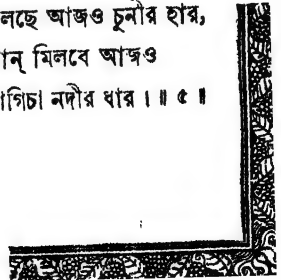 লছে আজও চুনীর হার,
ন্ মিলবে আজও
াগিচা নদীর ধার । ॥ ৫ ॥